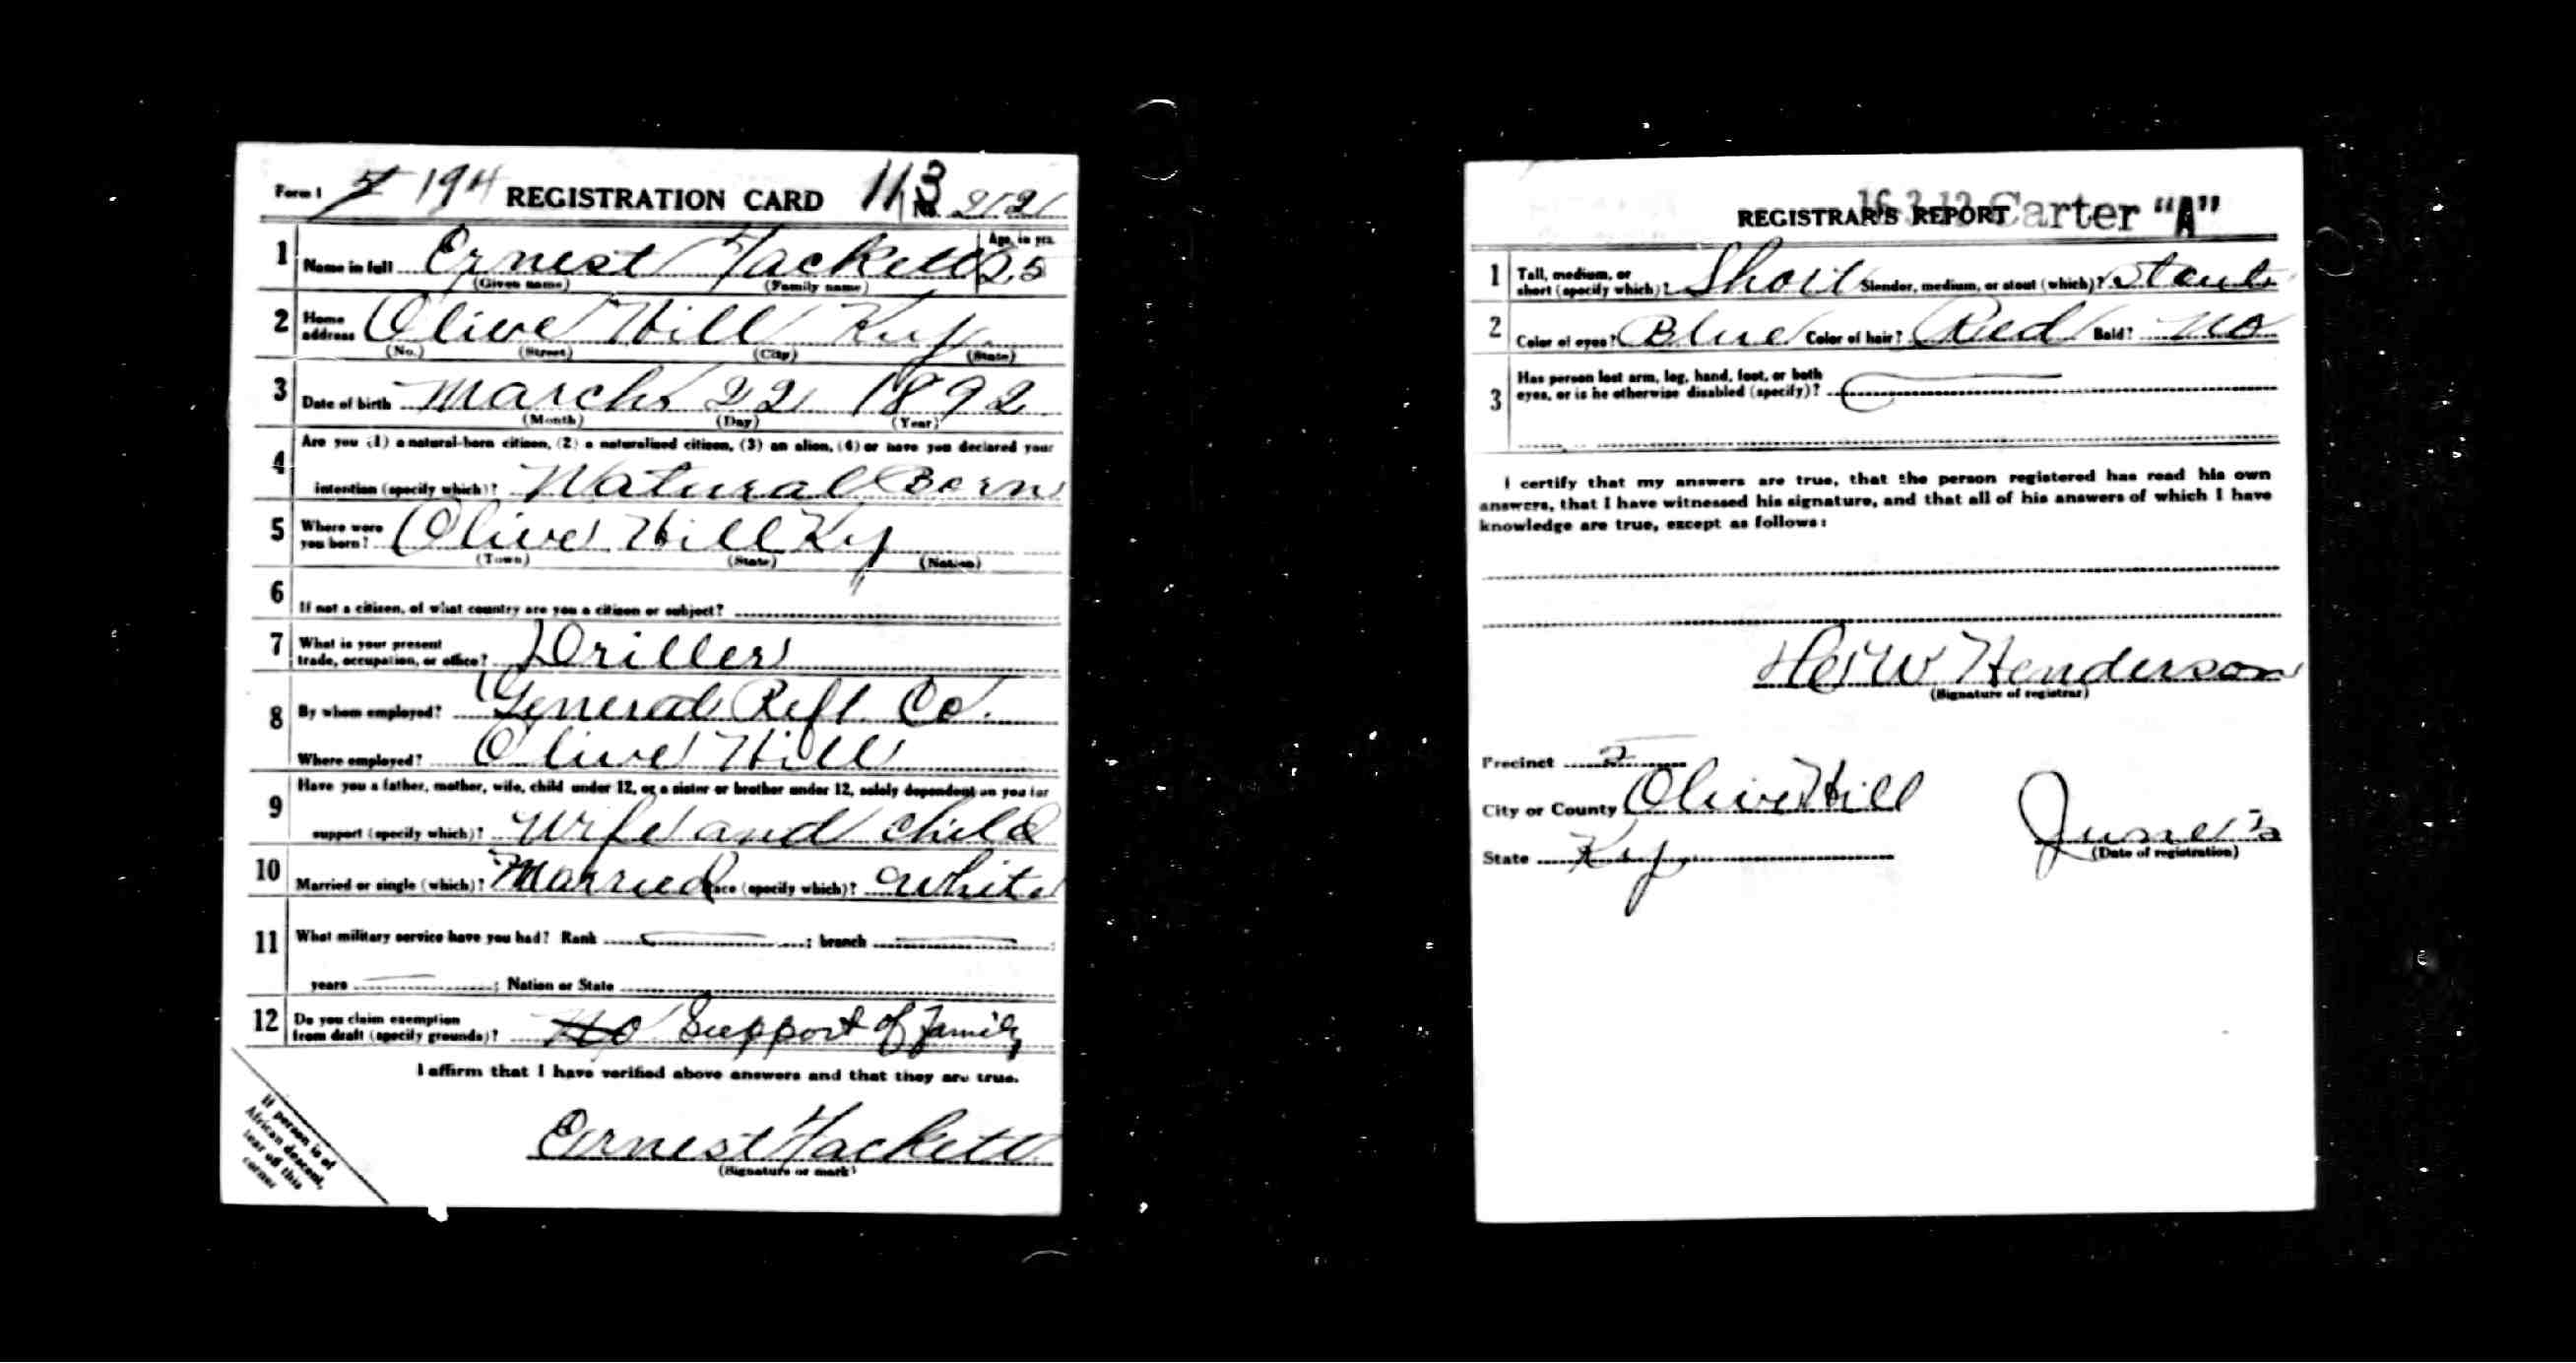 Form 1 194 REGISTRATION CARD 113 No. 2121
1 Name in full Ernest Hackett Age, in yrs. 25
(Given name) (Family name)
2 Home address Olive Hill Ky
(No.) (Street) (City) (State)
3 Date of birth March 22 1892
(Month) (Day) (Year)
4 Are you (1) a natural-born citizen, (2) a naturalized citizen, (3) an alien, (4) or have you declared your
intention (specify which)? Natural Born
5 Where were you born? Olive Hill Ky
(Town) (State) (Nation)
6 If not a citizen, of what country are you a citizen or subject?
7 What is your present
trade, occupation, or office? Driller
8 By whom employed? General Refr. Co.
Where employed? Olive Hill
9 Have you a father, mother, wife, child under 12, or a sister or brother under 12, solely dependent on you for
support (specify which)? Wife and child
10 Married or single (which)? Married Race (specify which)? White
11 What military service have you had? Rank ; branch ;
years ; Nation or State
12 Do you claim exemption
from draft (specify grounds)? No Support of Family
I affirm that I have verified above answers and that they are true.
Ernest Hackett
(Signature or mark)
If person is of
African descent,
tear off this
corner
REGISTRAR'S REPORT 16 3 12 Carter "A"
1 Tall, medium, or
short (specify which)? Short Slender, medium, or stout (which)? Stout
2 Color of eyes? Blue Color of hair? Red Bald? No
3 Has person lost arm, leg, hand, foot, or both
eyes, or is he otherwise disabled (specify)?
I certify that my answers are true, that the person registered has read his own
answers, that I have witnessed his signature, and that all of his answers of which I have
knowledge are true, except as follows:
Henderson
(Signature of registrar)
Precinct
City or County Olive Hill
State Ky
June 5
(Date of registration)